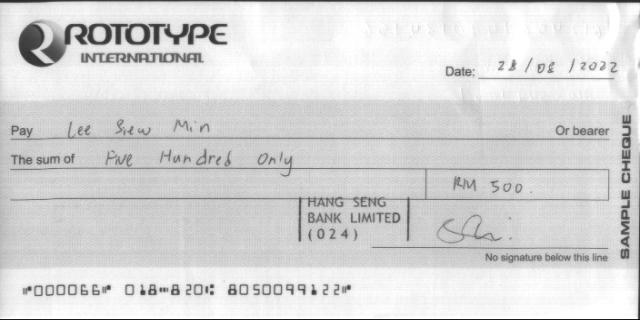 ROTOTYPE
INTERNATIONAL
Date: 28/08/2022
Pay Lee Siew Min Or bearer
The sum of Five Hundred Only
RM 500.
HANG SENG
BANK LIMITED
(024)
No signature below this line
SAMPLE CHEQUE
⑈000066⑈ 018⑉820⑆ 8050099122⑈